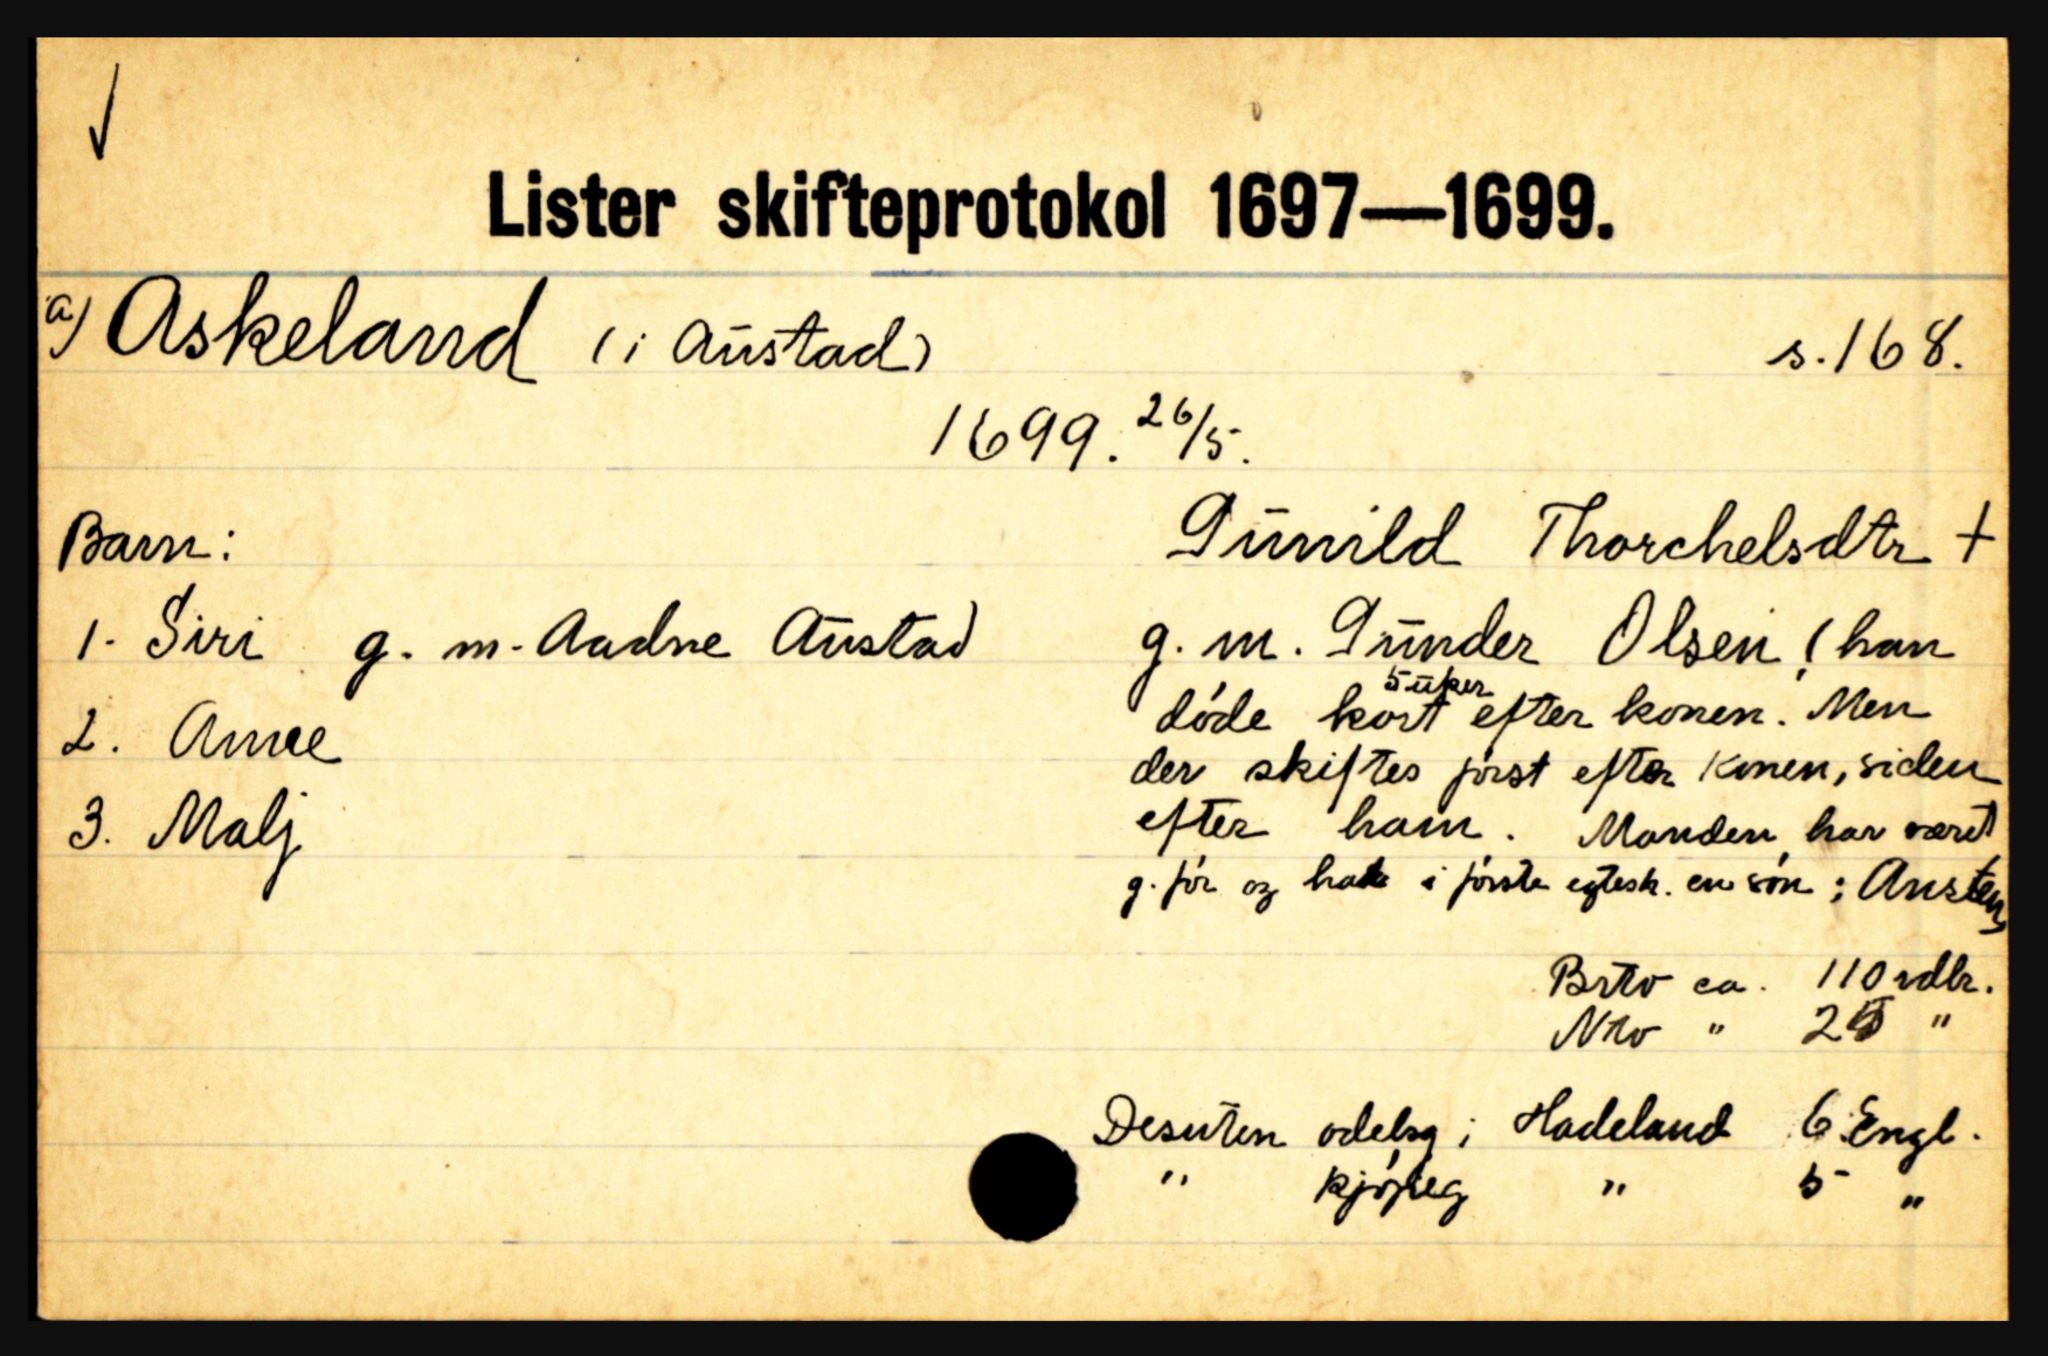 Lister skifteprotokol 1697—1699.
a) Askeland (i Austad) s. 168.
1699. 26/5.
Barn: Gunild Thorchelsdtr +
1. Siri g. m. Aadne Austad g. m. Gunder Olsen (han
5 uker
døde kort efter konen. Men
2. Anne
der skiftes først efter konen, siden
3. Malj efter ham. Manden har været
g. før og hat i første egtesk. en søn: Austen)
Brtto ca. 110 rdlr.
Ntto " 25 "
Desuten odelsg i Hadeland 6 Engl.
" kjøpeg " 5 "